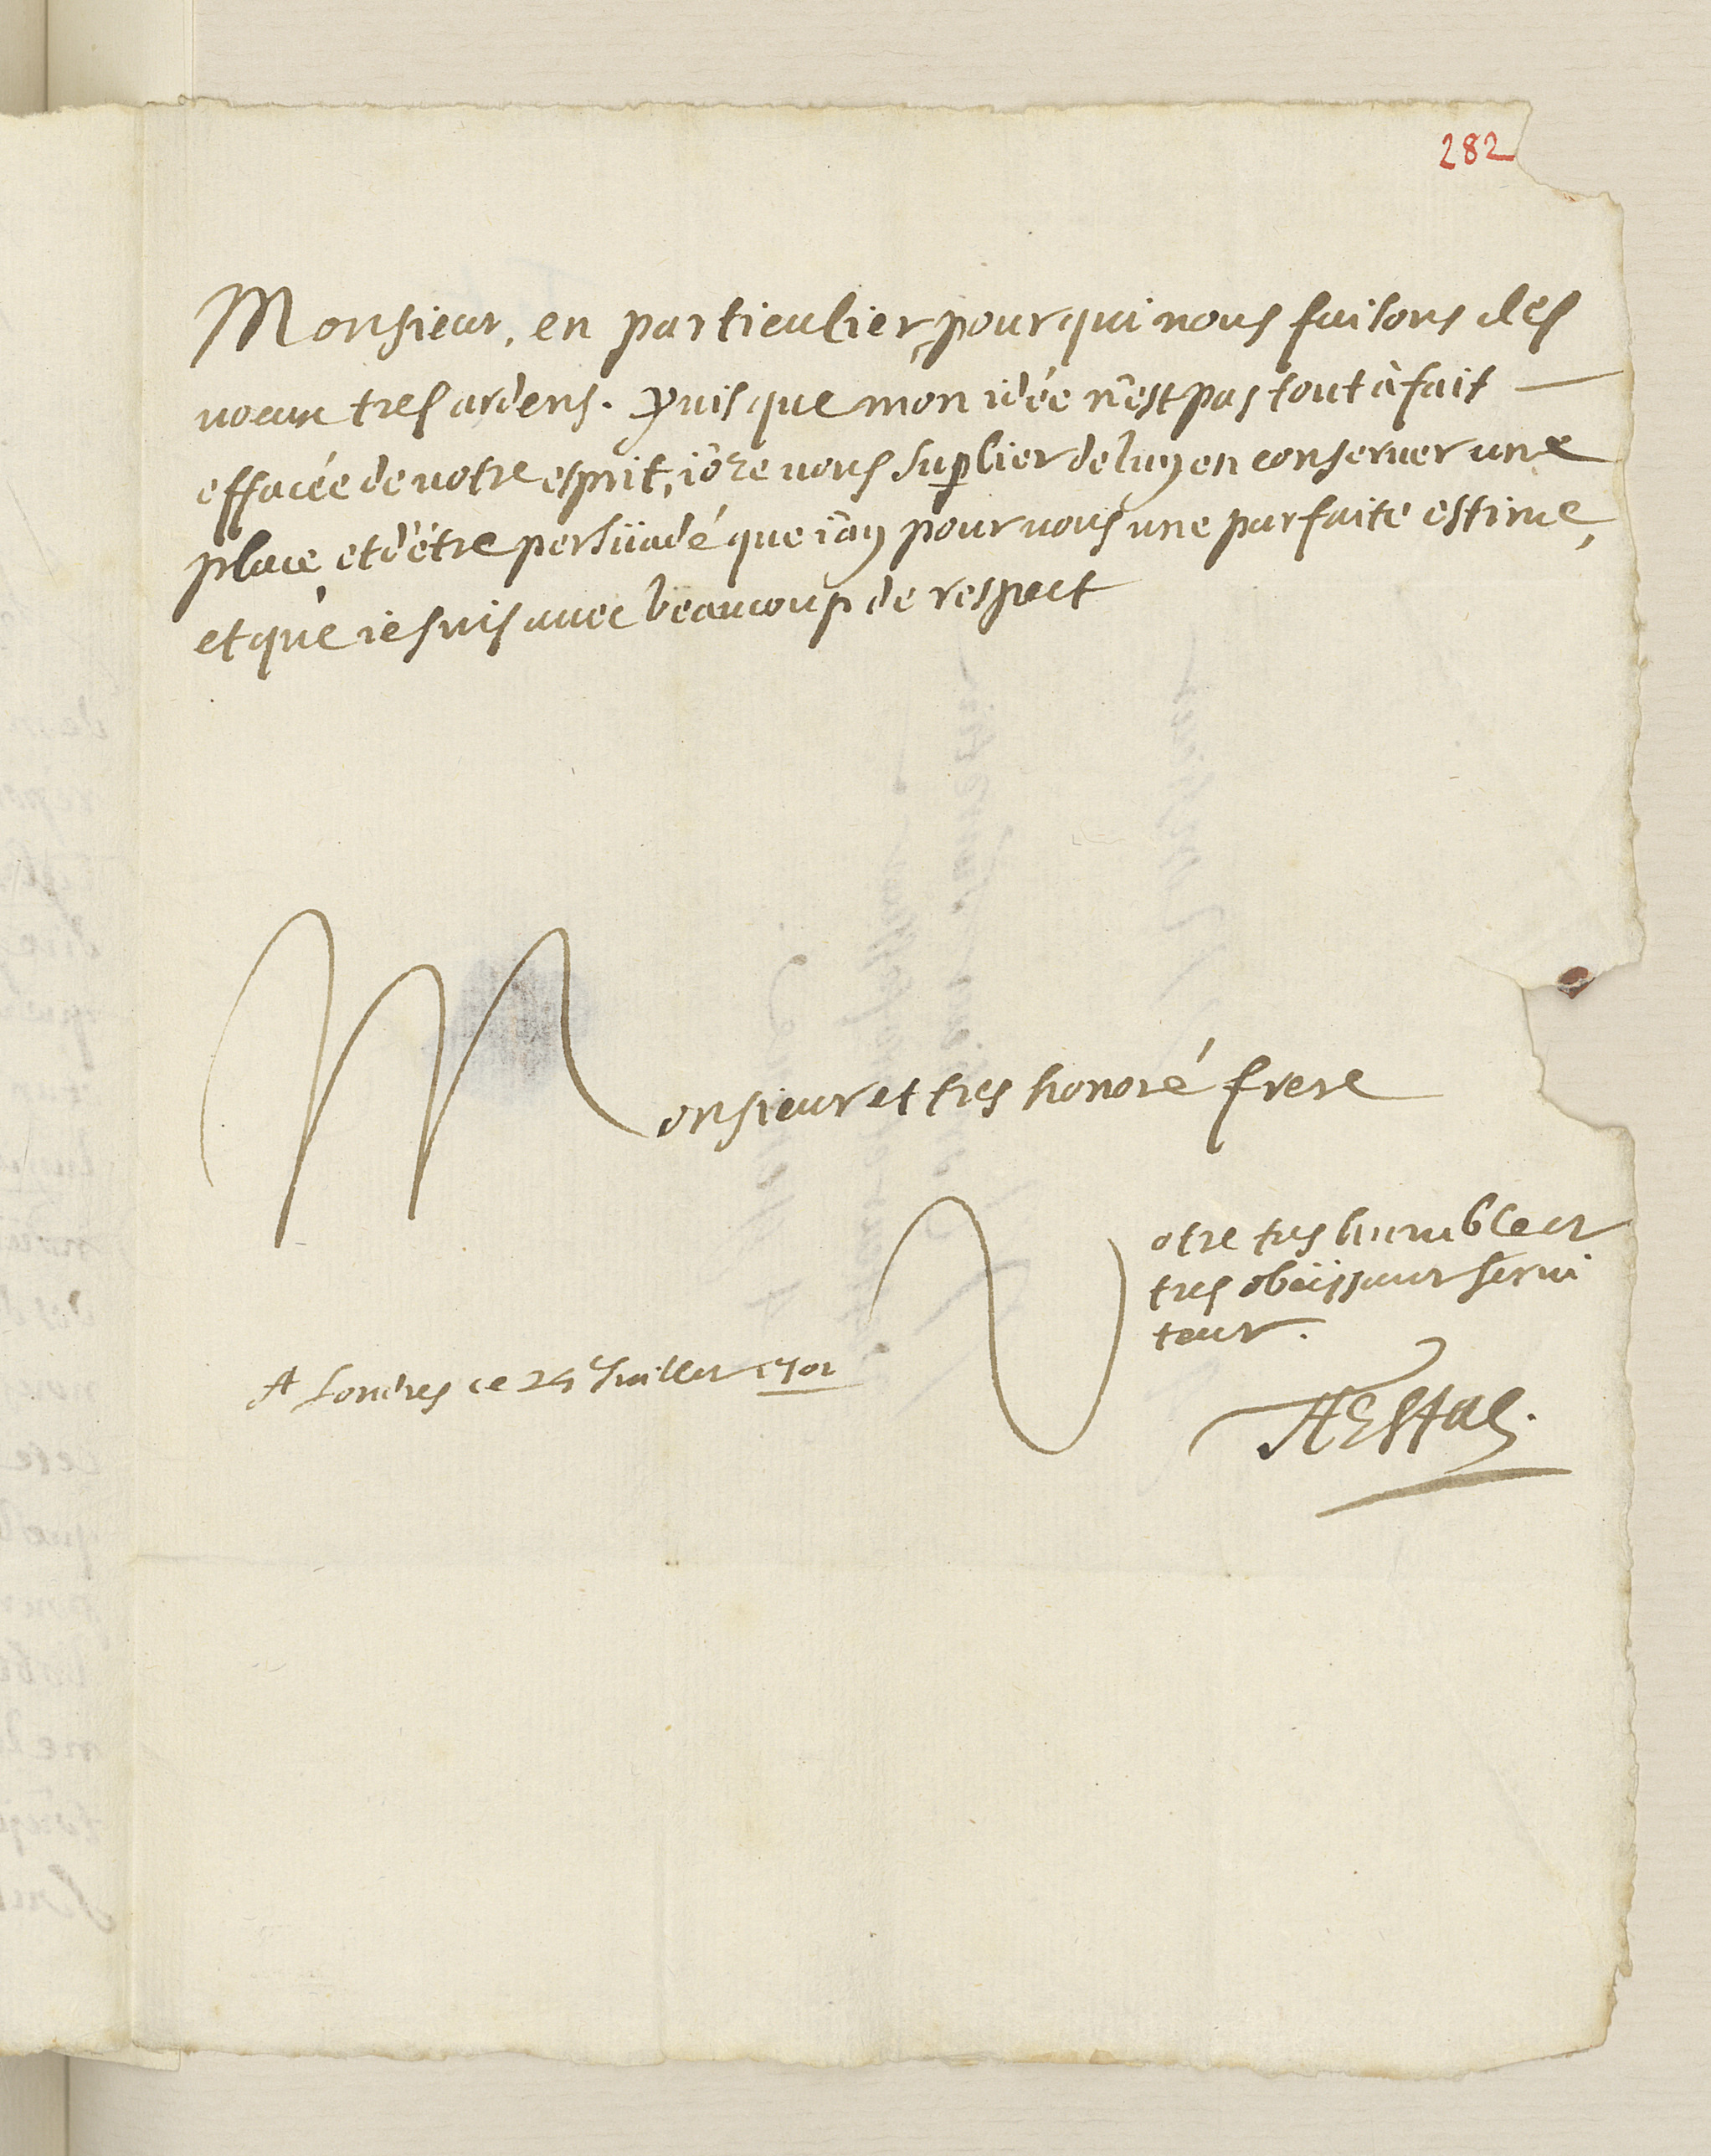 282
Monsieur, en particulier, pour qui nous faisons des
voeux tres ardens. Puis que mon idée n'est pas tout à fait
effacée de votre esprit, i'ôse vous suplier de luy en conserver une
place, et d'être persüadé que i'ay pour vous une parfaite estime,
et que ie suis avec beaucoup de respect
Monsieur et tres honoré frere
Votre tres humble et
tres obëissant servi
teur.
A Londres ce 24 Juillet 1701
Testas.